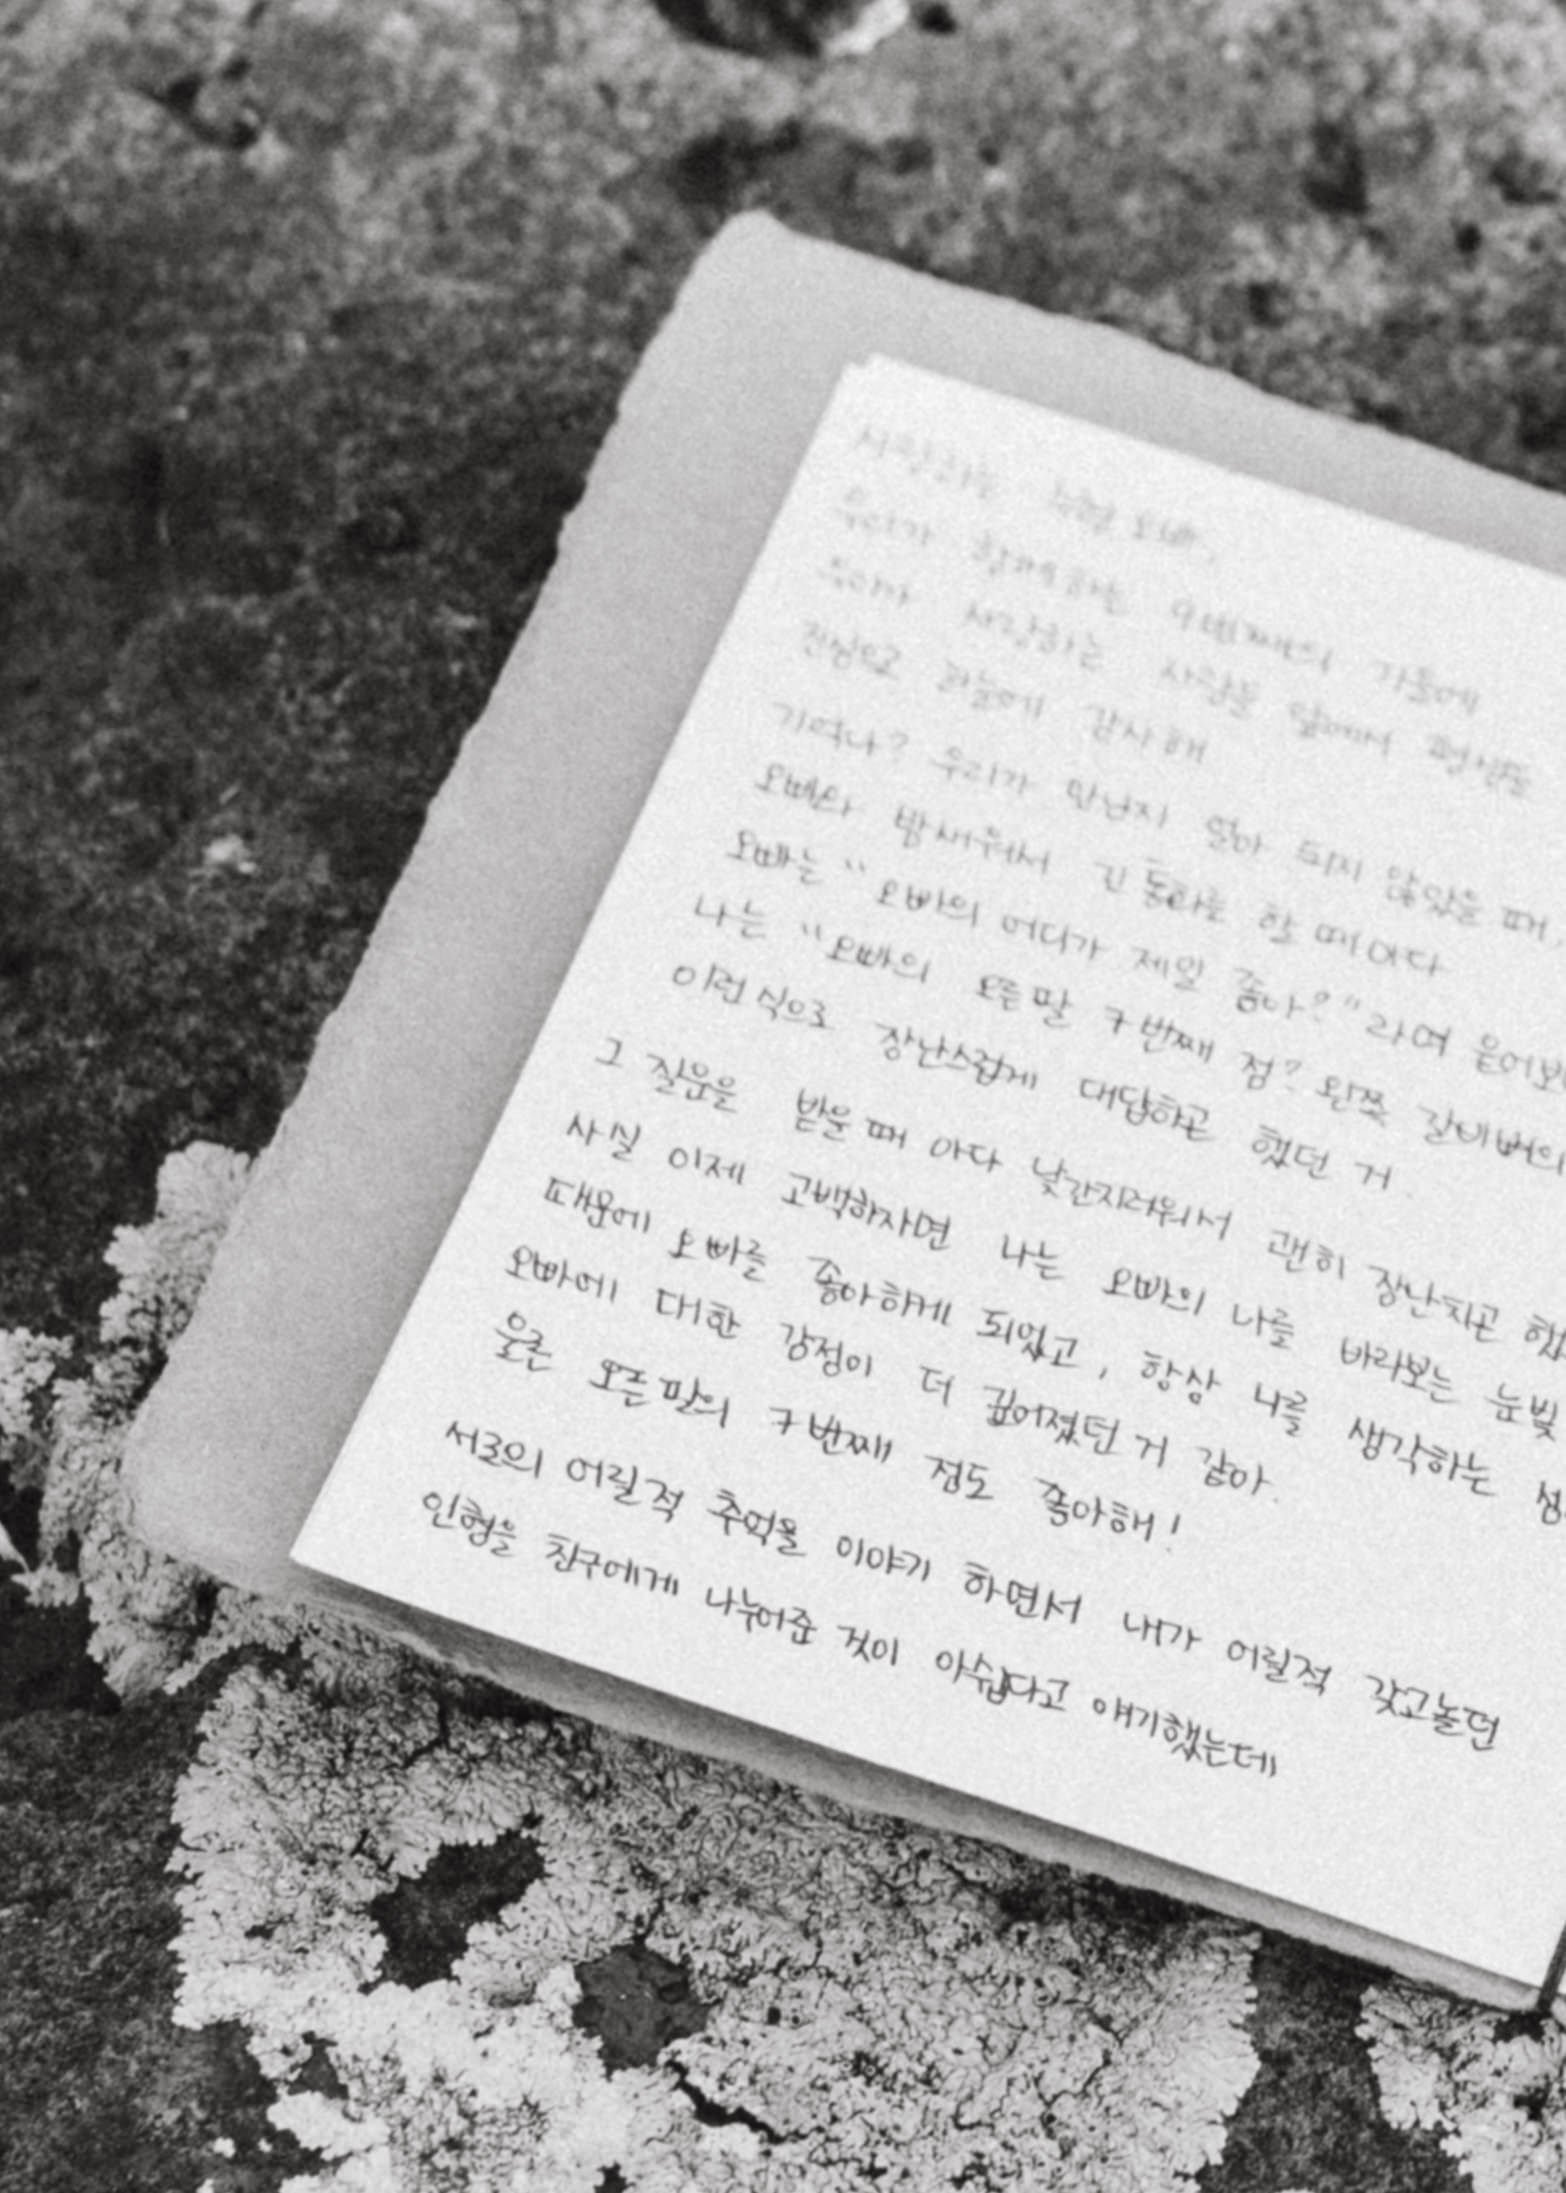 사랑하는 오빠,
우리가 함께하는 9번째의 가을에
우리가 사랑하는 사람들 앞에서 평생을
진심으로 하늘에 감사해
기억나? 우리가 만난지 얼마 되지 않았을 때
오빠와 밤새워서 긴 통화를 할 때마다
오빠는 "오빠의 어디가 제일 좋아?"라며 물어보
나는 "오빠의 오른팔 7번째 점? 왼쪽 갈비뼈의
이런 식으로 장난스럽게 대답하곤 했던 거.
그 질문을 받을 때 마다 낯간지러워서 괜히 장난치곤 했
사실 이제 고백하자면 나는 오빠의 나를 바라보는 눈빛
때문에 오빠를 좋아하게 되었고, 항상 나를 생각하는
오빠에 대한 감정이 더 깊어졌던 거 같아.
물론 오른팔의 7번째 점도 좋아해!
서로의 어릴적 추억을 이야기 하면서 내가 어릴적 갖고놀던
인형을 친구에게 나누어준 것이 아쉽다고 얘기했는데